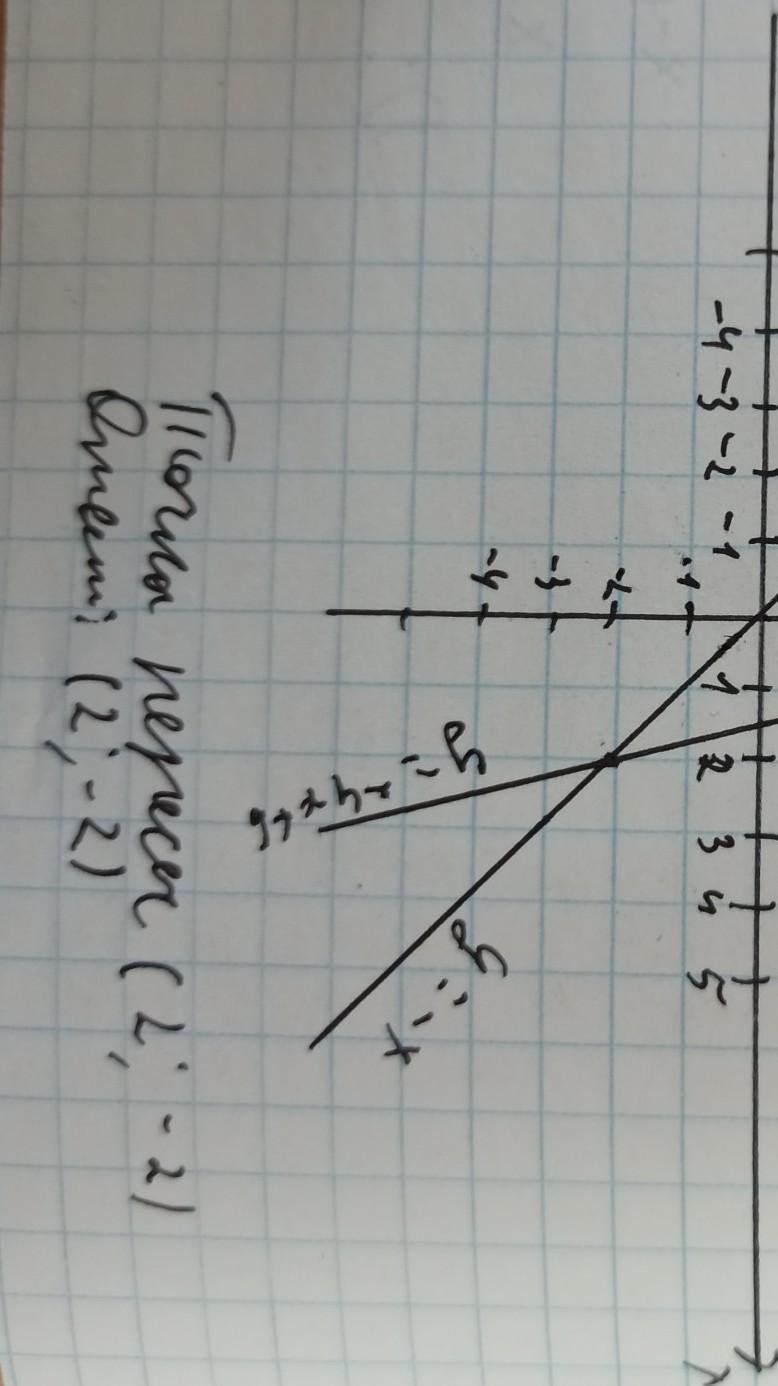 -4 -3 -2 -1 1 2 3 4 5
x
-1
-2
-3
-4
y = -x
Точка пересеч (2; -2)
Ответ: (2; -2)